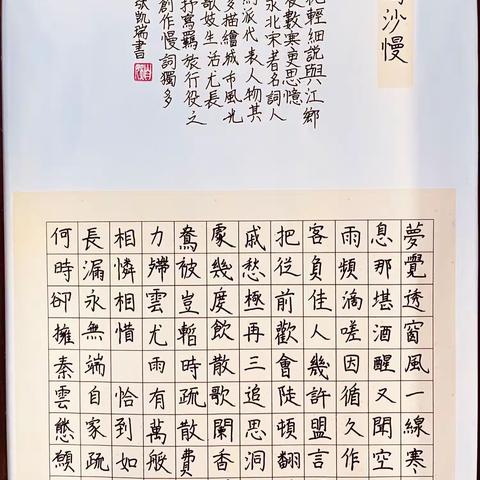 沙慢
輕細說與江鄉
數寒更思憶
永北宋著名詞人
派代表人物其
多描繪城市風光
歌妓生活尤長
抒寫羈旅行役之
創作慢詞獨多
凱瑞書
夢覺透窗風一線寒
息那堪酒醒又聞空
雨頻滴嗟因循久作
客負佳人幾許盟言
把從前歡會陡頓翻
戚愁極再三追思洞
處幾度飲散歌闌香
鴦被豈暫時疏散費
力殢雲尤雨有萬般
相憐相惜 恰到如
長漏永無端自家疏
何時卻擁秦雲態願